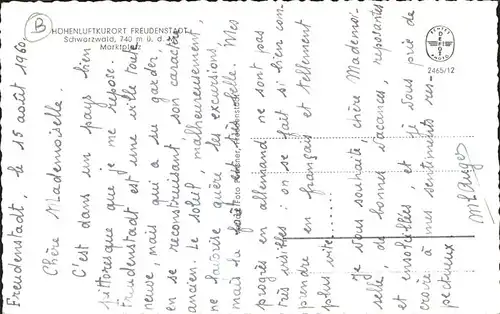 HÖHENLUFTKURORT FREUDENSTADT
Schwarzwald, 740 m ü. d. M.
Marktplatz
B
2465/12
Freudenstadt, le 15 août 1960.
Chère Mademoiselle.
C'est dans un pays bien
pittoresque que je me repose.
Freudenstadt est une ville toute
neuve, mais qui a su garder,
en se reconstruisant son caractère
ancien. Le soleil, malheureusement,
ne favorise guère les excursions
mais la forêt est si belle. Mes
progrès en allemand ne sont pas
très visibles : on se fait si bien com-
prendre en français et tellement
plus vite...
Je vous souhaite, chère Mademoi-
selle, de bonnes vacances, reposantes
et ensoleillées, et je vous prie de
croire à mes sentiments res-
pectueux.